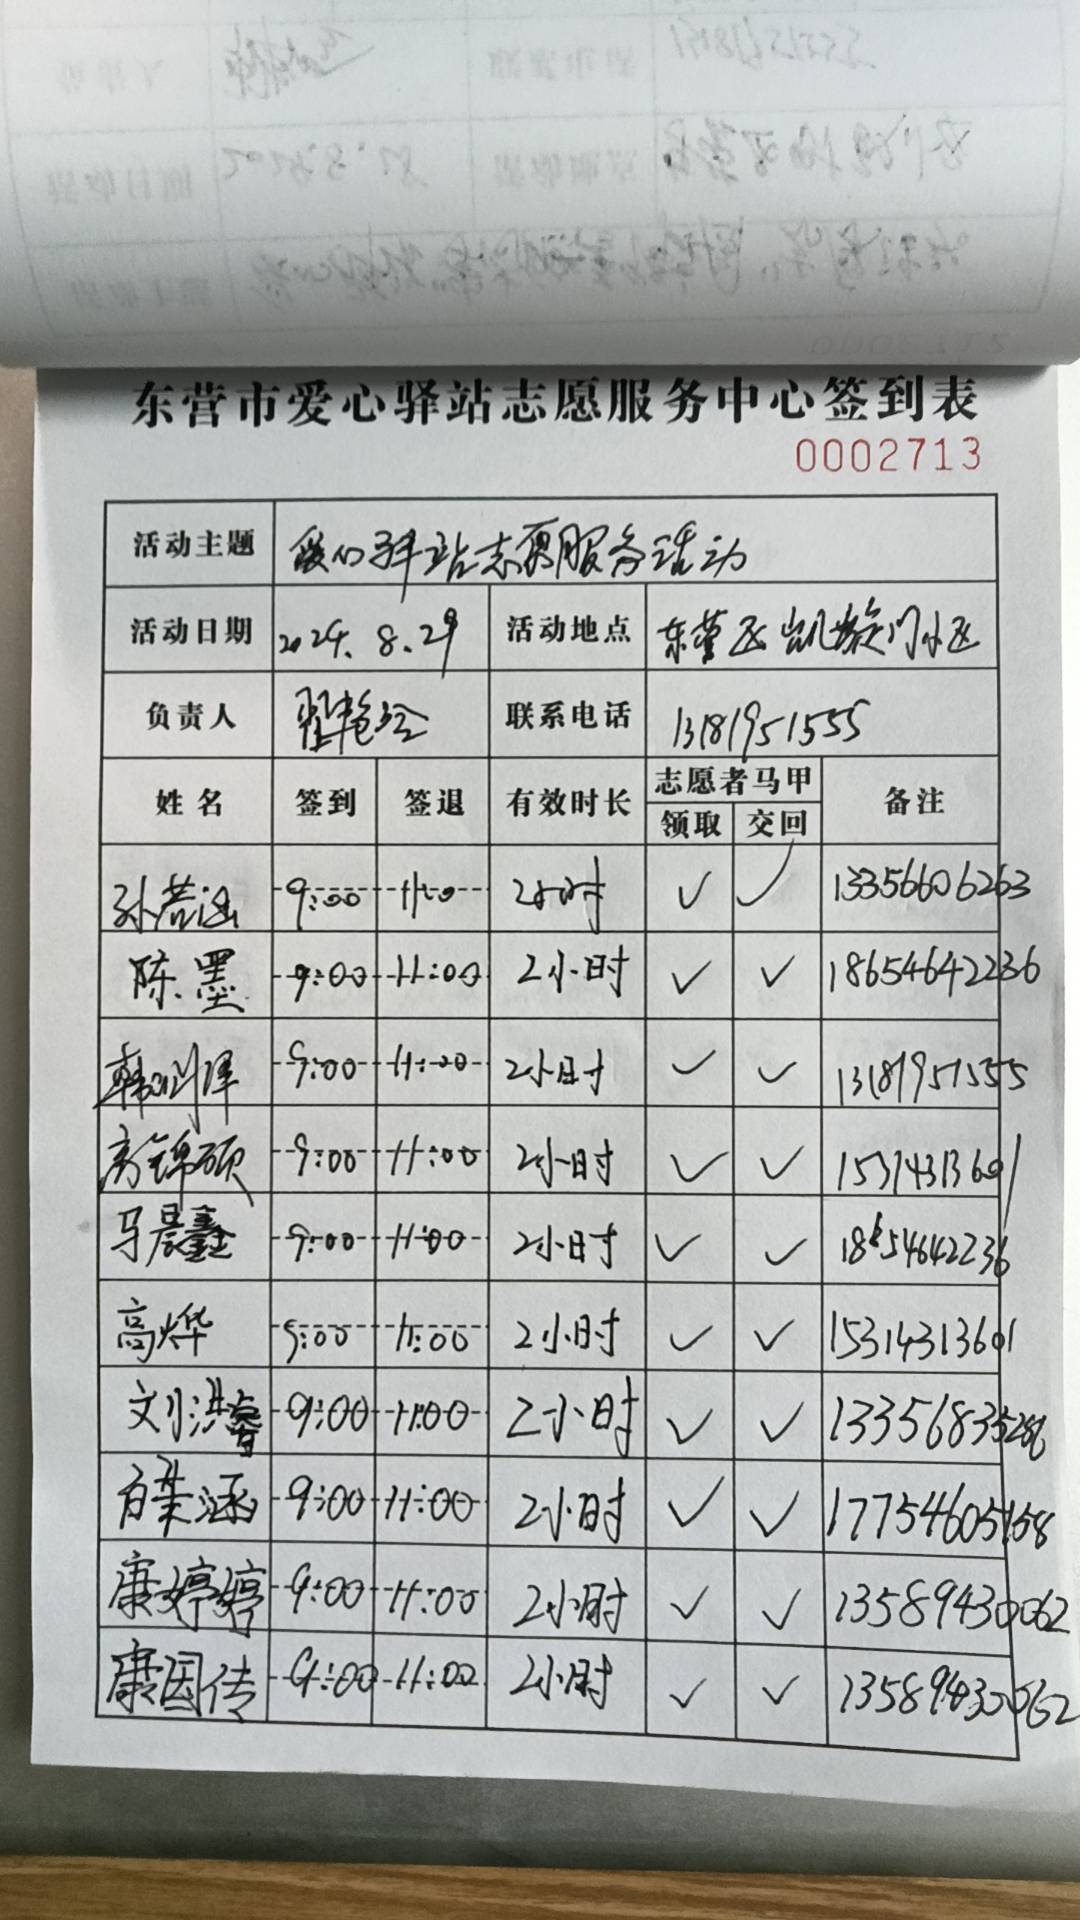 东营市爱心驿站志愿服务中心签到表
0002713
活动主题 爱心驿站志愿服务活动
活动日期 2024.8.29 活动地点 东营区凯旋门小区
负责人 翟艳玲 联系电话 13181951555
姓名 签到 签退 有效时长 志愿者马甲 领取 交回 备注
孙若涵 9:00 11:00 2小时 ✓ ✓ 13356606263
陈墨 9:00 11:00 2小时 ✓ ✓ 18654642236
韩 9:00 11:00 2小时 ✓ ✓ 13181951555
高锦硕 9:00 11:00 2小时 ✓ ✓ 15314313601
马晨鑫 9:00 11:00 2小时 ✓ ✓ 18654642236
高烨 9:00 11:00 2小时 ✓ ✓ 15314313601
刘洪睿 9:00 11:00 2小时 ✓ ✓ 13356835286
涵 9:00 11:00 2小时 ✓ ✓ 17754605158
康婷婷 9:00 11:00 2小时 ✓ ✓ 13589430062
康因传 9:00 11:00 2小时 ✓ ✓ 13589430062